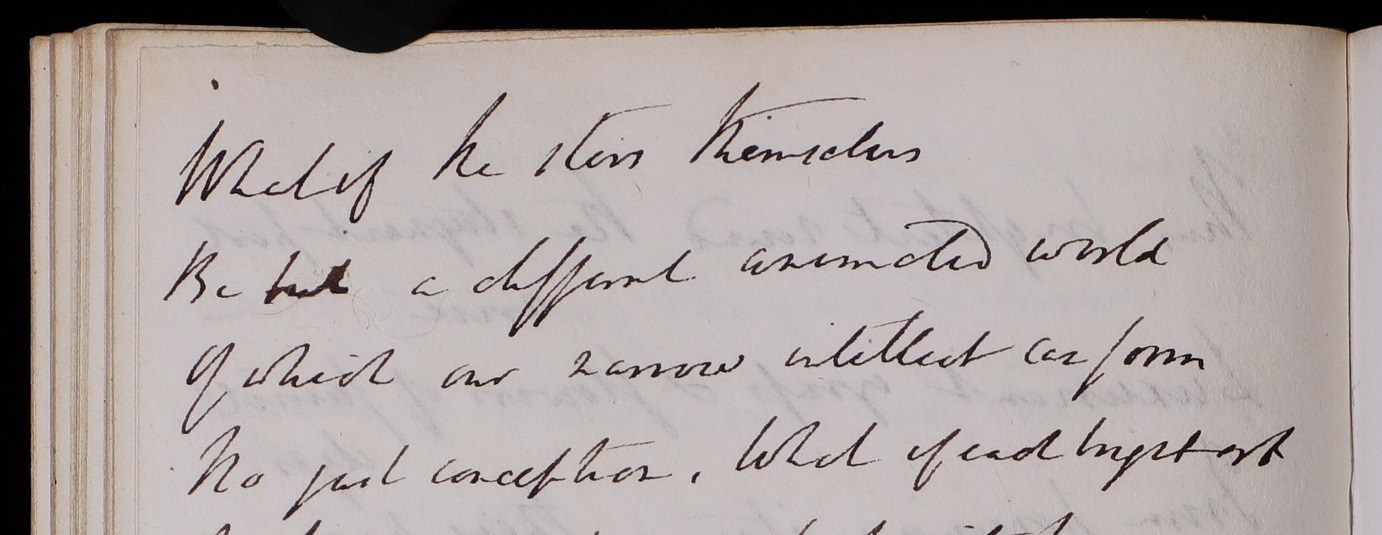 What if the stars themselves
Be but a different animated world
Of which our narrow intellect can form
No just conception, What if each bright orb